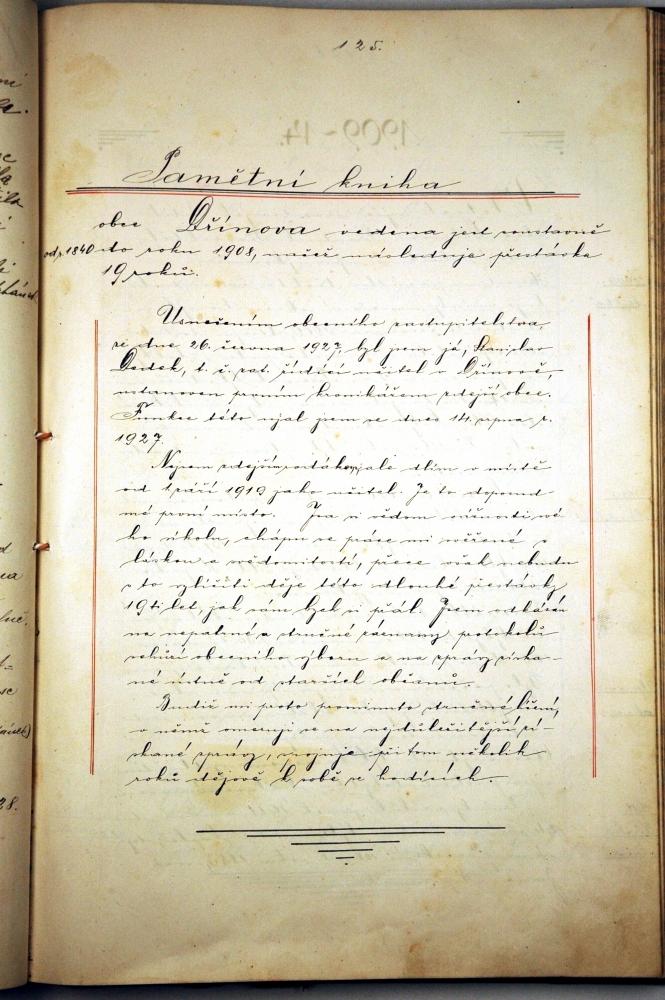 125.
Pamětní kniha
obce Dřínova vedena jest soustavně
od r. 1840 do roku 1908, načež následuje přestávka
19 roků.
Usnešením obecního zastupitelstva
ze dne 26. června 1927, byl jsem já, Stanislav
Dedek, t. č. zat. řídící učitel v Dřínově,
ustanoven prvním kronikářem zdejší obce.
Funkce této ujal jsem se dnes 14. srpna r.
1927.
Nejsem zdejším rodákem, ale dlím v místě
od 1 září 1919 jako učitel. Je to doposud
mé první místo. Jsa si vědom vážnosti své-
ho úkolu, chápu se práce mi svěřené s
láskou a svědomitostí, přece však nebudu
s to vylíčiti děje této dlouhé přestávky
19ti let, jak sám bych si přál. Jsem odkázán
na nepatrné a stručné záznamy protokolů
schůzí obecního výboru a na zprávy získa-
né ústně od starších občanů.
Budiž mi proto prominuto stručné líčení,
v němž omezuji se na nejdůležitější zí-
skané zprávy, spojuje při tom několik
roků dějově k sobě se hodících.
28.